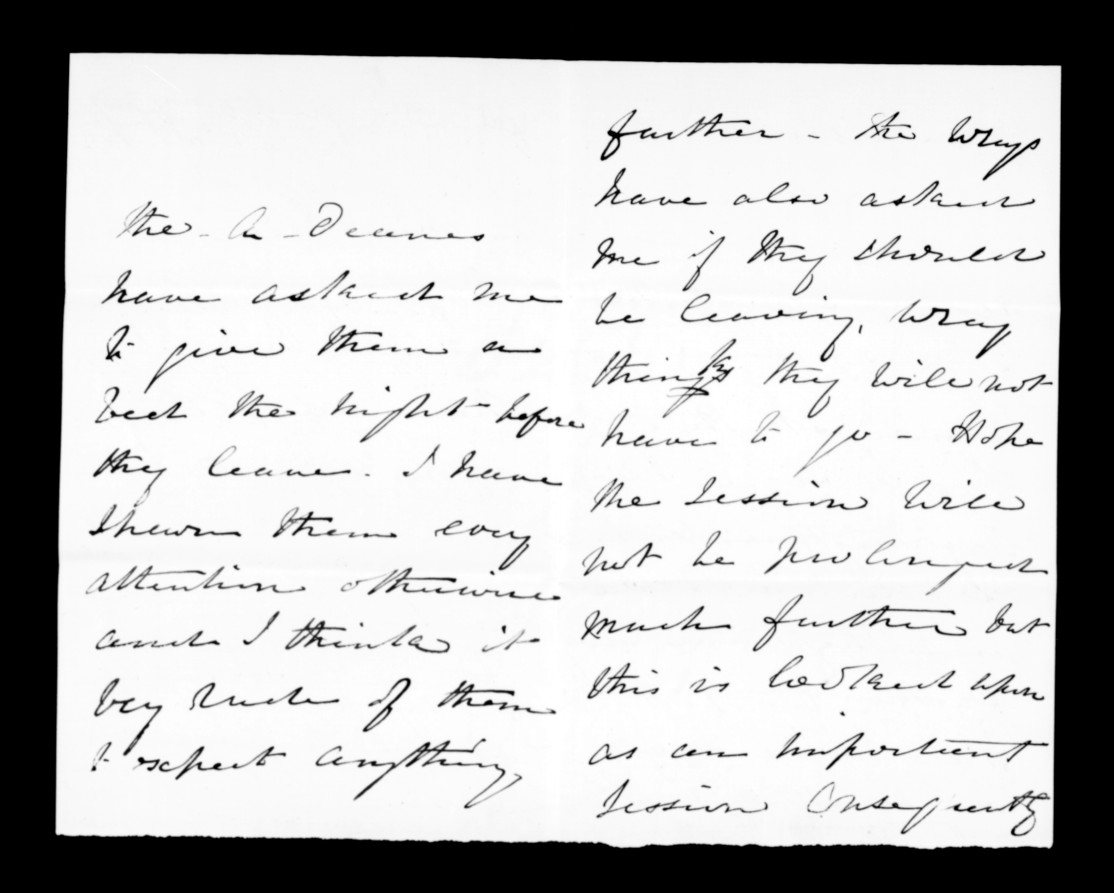 The - A - Deanes
have asked me
to give them a
bed the night before
they leave. I have
shewn them every
attention otherwise
and I think it
very rude of them
to expect anything
further - the Wrays
have also asked
me if they should
be leaving, Wray
thinks they will not
have to go - Hope
the Session will
not be prolonged
much further but
this is looked upon
as an important
Session Consequently